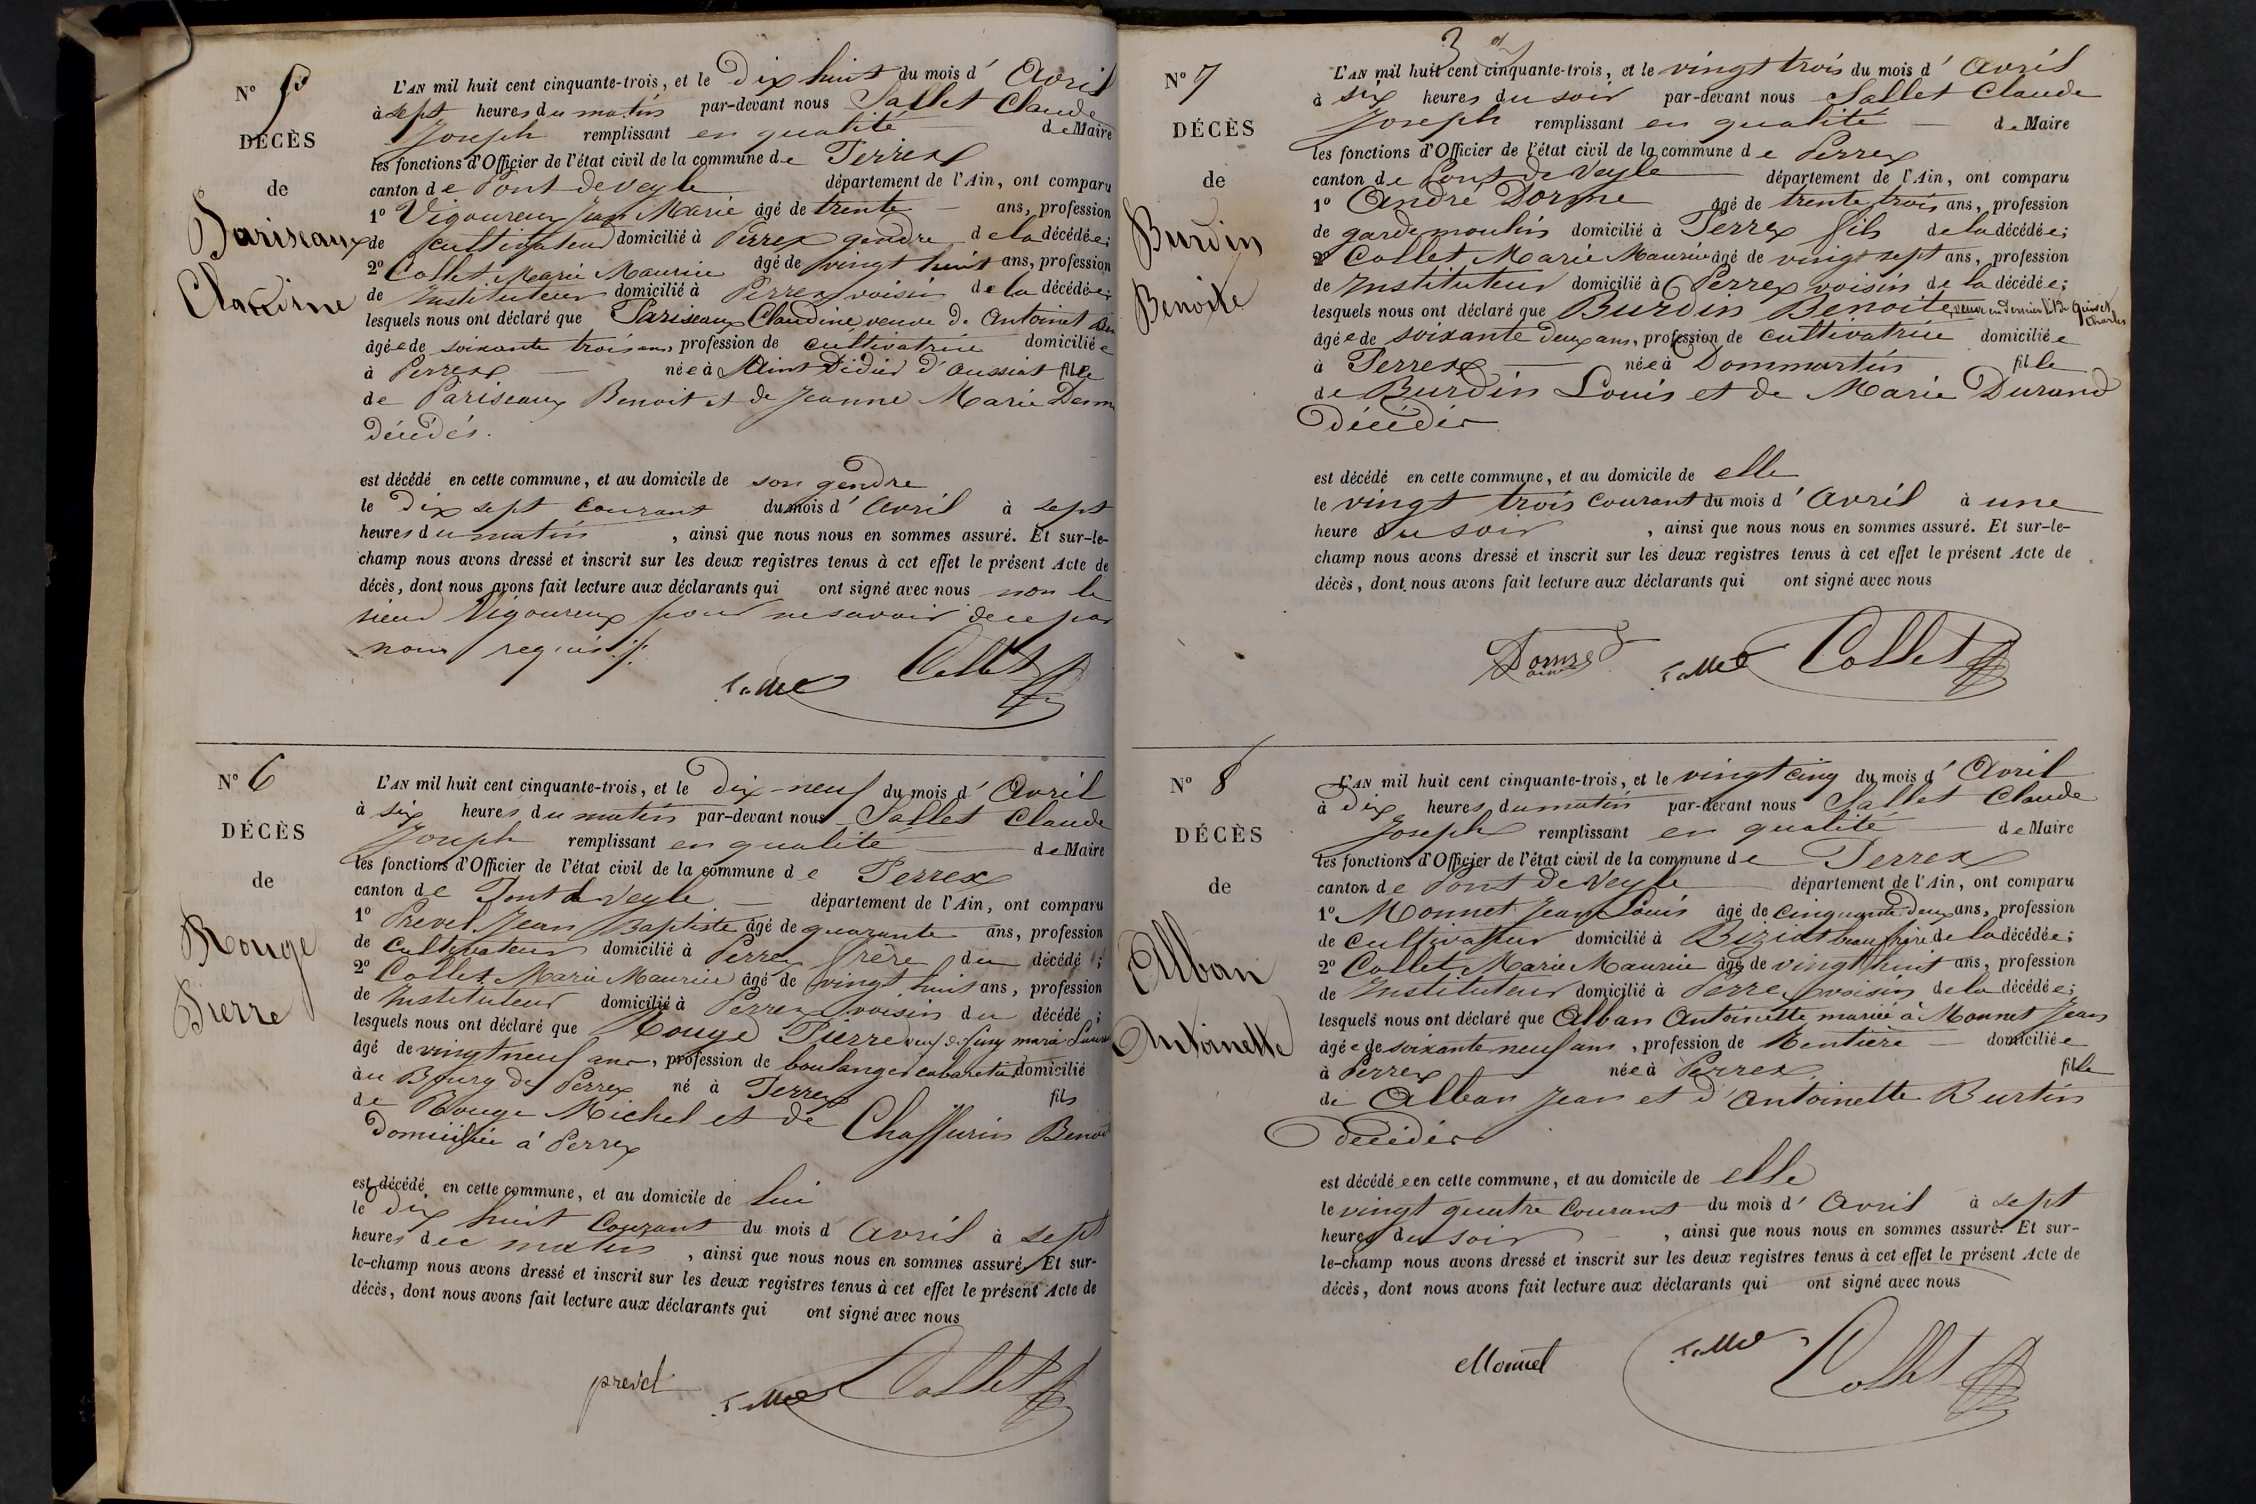 N° 5
DÉCÈS
de
Pariseaux
Claudine
L'AN mil huit cent cinquante-trois, et le Dix huit du mois d' Avril
à sept heures du matin par-devant nous Sallet Claude
Joseph remplissant en qualité de Maire
les fonctions d'Officier de l'état civil de la commune de Perrex
canton de Pont de Veyle département de l'Ain, ont comparu
1° Vigoureux Jean Marie âgé de trente ans, profession
de cultivateur domicilié à Perrex gendre de la décédée;
2° Collet Marie Maurice âgé de vingt huit ans, profession
de Instituteur domicilié à Perrex voisin de la décédée;
lesquels nous ont déclaré que Pariseaux Claudine veuve de Antoinet
âgée de soixante trois ans, profession de cultivatrice domiciliée
à Perrex née à Saint Didier d'Aussiat fille
de Pariseaux Benoit et de Jeanne Marie
décédés.
est décédé en cette commune, et au domicile de son gendre
le Dix sept courant du mois d' Avril à sept
heures du matin, ainsi que nous nous en sommes assuré. Et sur-le-
champ nous avons dressé et inscrit sur les deux registres tenus à cet effet le présent Acte de
décès, dont nous avons fait lecture aux déclarants qui ont signé avec nous non le
sieur Vigoureux pour ne savoir de ce par
nous requis ./.
Sallet Collet
N° 6
DÉCÈS
de
Rouge
Pierre
L'AN mil huit cent cinquante-trois, et le Dix-neuf du mois d' Avril
à six heures du matin par-devant nous Sallet Claude
Joseph remplissant en qualité de Maire
les fonctions d'Officier de l'état civil de la commune de Perrex
canton de Pont de Veyle département de l'Ain, ont comparu
1° Prevel Jean Baptiste âgé de quarante ans, profession
de cultivateur domicilié à Perrex frère du décédé;
2° Collet Marie Maurice âgé de vingt huit ans, profession
de Instituteur domicilié à Perrex voisin du décédé;
lesquels nous ont déclaré que Rouge Pierre veuf de
âgé de vingt neuf ans, profession de boulanger cabaretier domicilié
au Bourg de Perrex né à Perrex fils
de Rouge Michel et de Chaffurin Benoite
domiciliée à Perrex
est décédé en cette commune, et au domicile de lui
le dix huit courant du mois d' Avril à sept
heures du matin, ainsi que nous nous en sommes assuré. Et sur-
le-champ nous avons dressé et inscrit sur les deux registres tenus à cet effet le présent Acte de
décès, dont nous avons fait lecture aux déclarants qui ont signé avec nous
prevel Sallet Collet
N° 7
DÉCÈS
de
Burdin
Benoite
L'AN mil huit cent cinquante-trois, et le vingt trois du mois d' Avril
à six heures du soir par-devant nous Sallet Claude
Joseph remplissant en qualité de Maire
les fonctions d'Officier de l'état civil de la commune de Perrex
canton de Pont de Veyle département de l'Ain, ont comparu
1° André Dorme âgé de trente trois ans, profession
de garde moulin domicilié à Perrex fils de la décédée;
2° Collet Marie Maurice âgé de vingt sept ans, profession
de Instituteur domicilié à Perrex voisin de la décédée;
lesquels nous ont déclaré que Burdin Benoite, veuve en dernier lit de Charles
âgée de soixante deux ans, profession de cultivatrice domiciliée
à Perrex née à Dommartin fille
de Burdin Louis et de Marie Durand
Décédés
est décédé en cette commune, et au domicile de elle
le vingt trois courant du mois d' Avril à une
heure du soir, ainsi que nous nous en sommes assuré. Et sur-le-
champ nous avons dressé et inscrit sur les deux registres tenus à cet effet le présent Acte de
décès, dont nous avons fait lecture aux déclarants qui ont signé avec nous
Sallet Collet
N° 8
DÉCÈS
de
Alban
Antoinette
L'AN mil huit cent cinquante-trois, et le vingt cinq du mois d' Avril
à Dix heures du matin par-devant nous Sallet Claude
Joseph remplissant en qualité de Maire
les fonctions d'Officier de l'état civil de la commune de Perrex
canton de Pont de Veyle département de l'Ain, ont comparu
1° Monnet Jean Louis âgé de cinquante deux ans, profession
de cultivateur domicilié à Biziat beau frère de la décédée;
2° Collet Marie Maurice âgé de vingt huit ans, profession
de Instituteur domicilié à Perrex voisin de la décédée;
lesquels nous ont déclaré que Alban Antoinette mariée à Monnet Jean
âgée de soixante neuf ans, profession de Rentière domiciliée
à Perrex née à Perrex fille
de Alban Jean et d'Antoinette Burtin
Décédés
est décédée en cette commune, et au domicile de elle
le vingt quatre courant du mois d' Avril à sept
heures du soir, ainsi que nous nous en sommes assuré. Et sur-
le-champ nous avons dressé et inscrit sur les deux registres tenus à cet effet le présent Acte de
décès, dont nous avons fait lecture aux déclarants qui ont signé avec nous
Monnet Sallet Collet